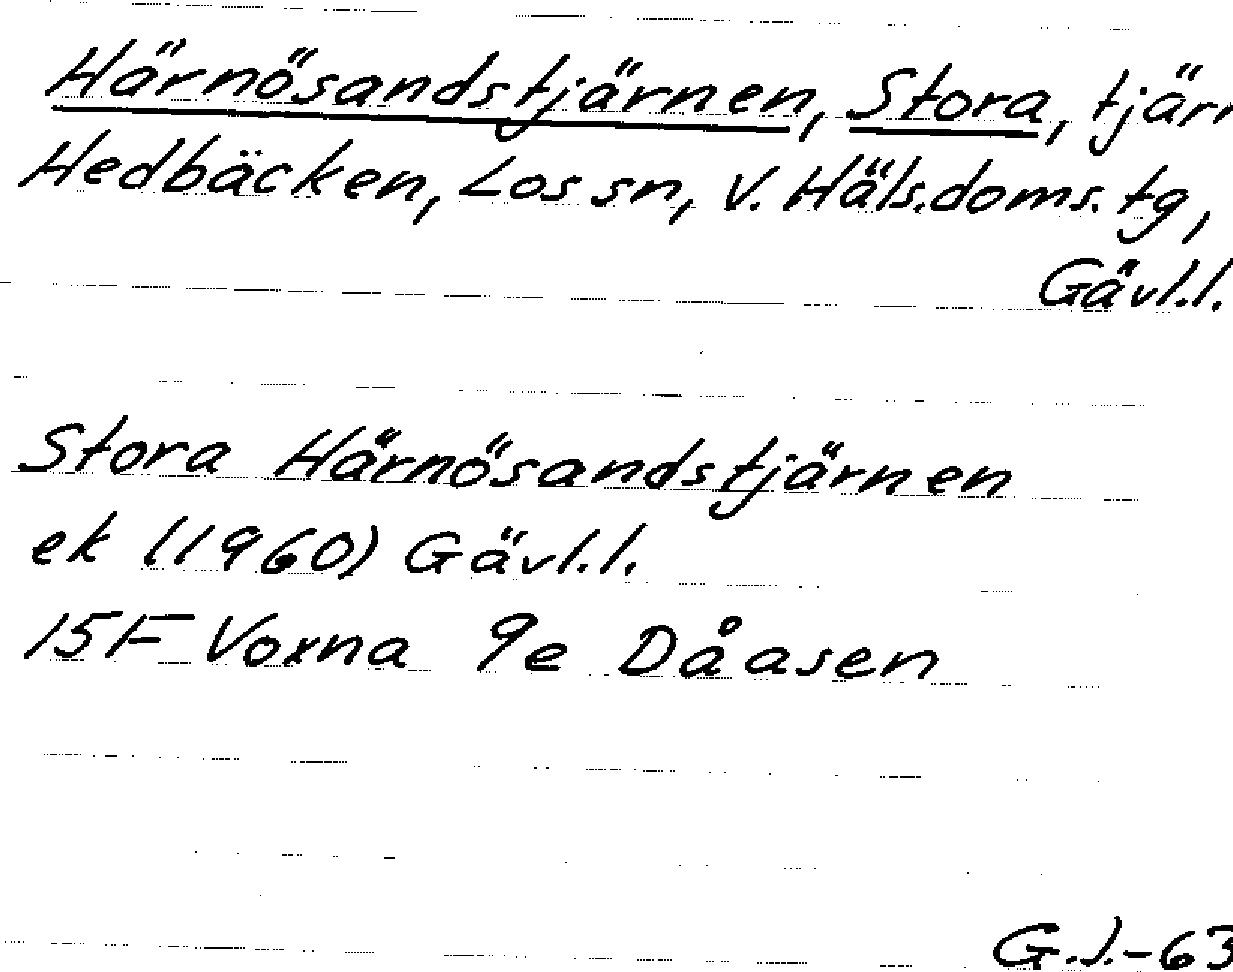 Härnösandstjärnen, Stora, tjärn
Hedbäcken, Los sn, V. Häls. doms. tg,
Gävl.l.
Stora Härnösandstjärnen
ek (1960) Gävl.l.
15F Voxna 9e Dåasen
G.J.-63